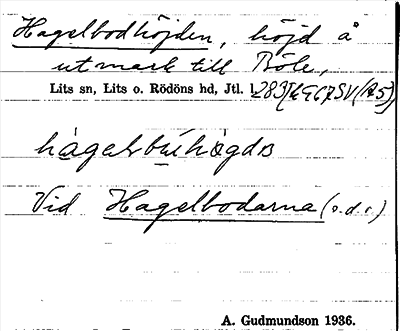 Hagelbodhöjden, höjd å
utmark till Böle,
Lits sn, Lits o. Rödöns hd, Jtl.
Vid Hagelbodarna (s.d.o.)
A. Gudmundson 1936.